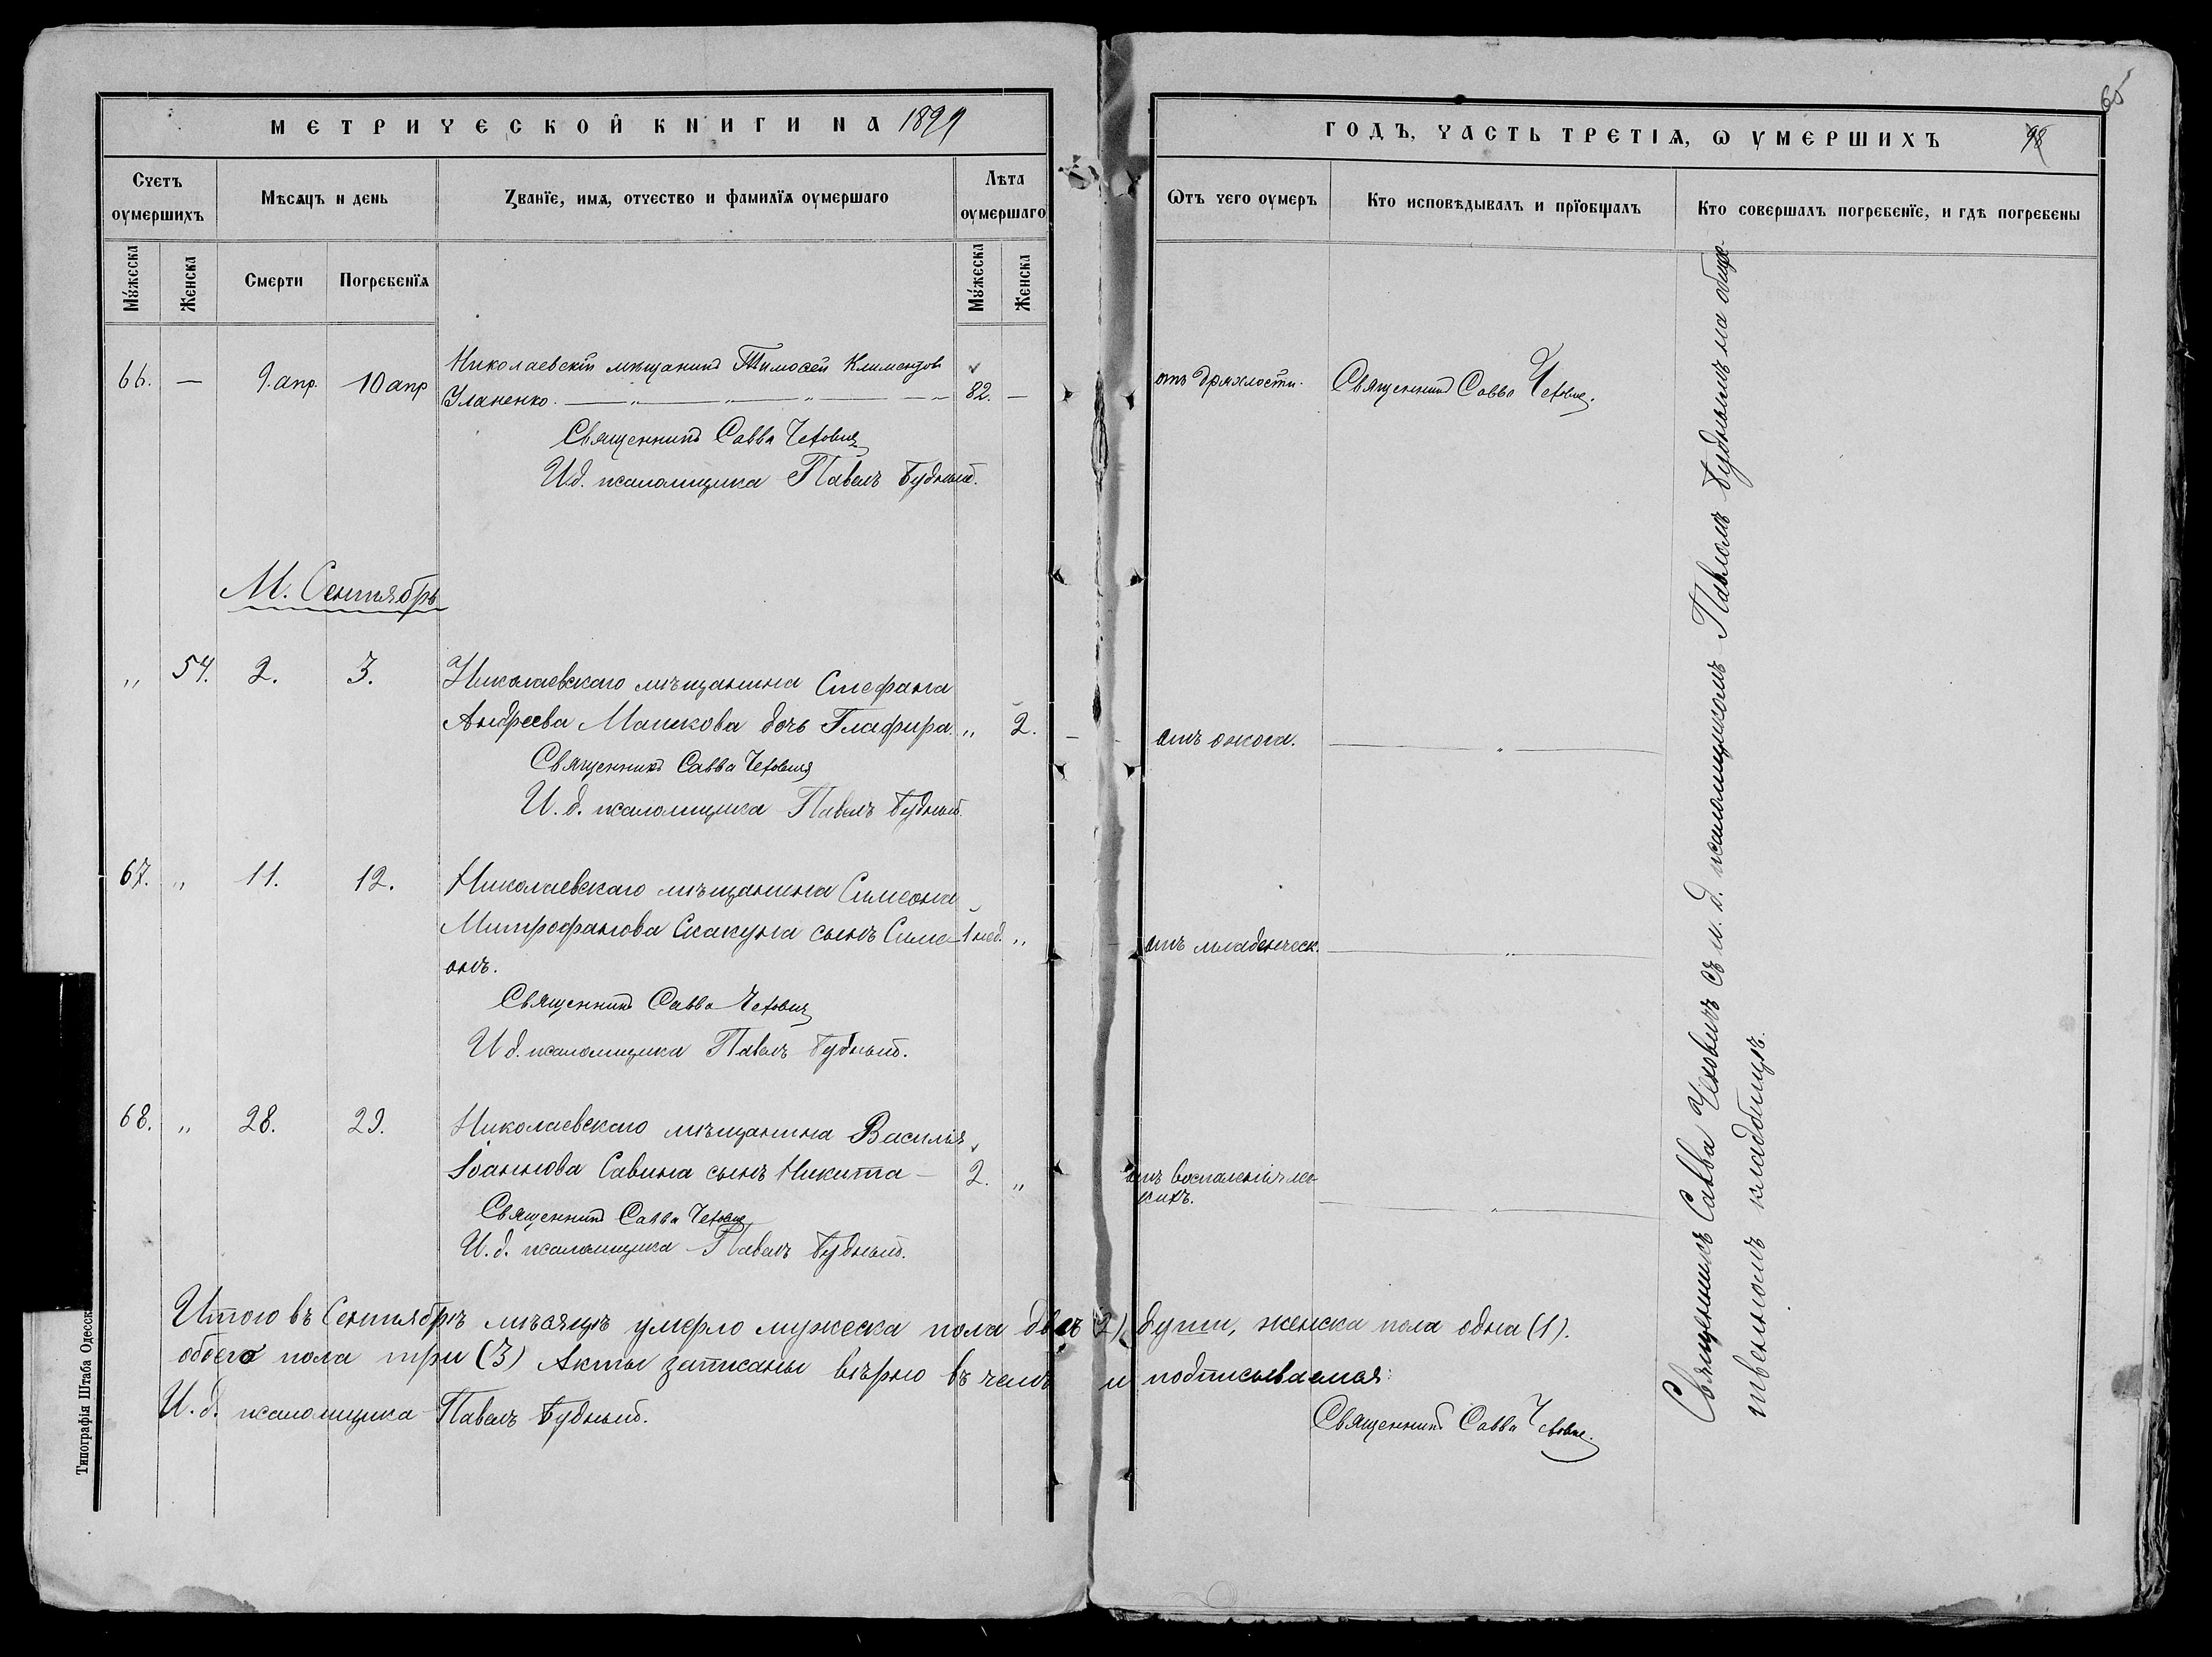 МЕТРИЧЕСКОЙ КНИГИ НА 1899
Счетъ оумершихъ
Мѣсяцъ и день
Званїе, имя, отчество и фамилїя оумершаго
Лѣта оумершаго
Мꙋжеска
Женска
Смерти
Погребенїя
Мꙋжеска
Женска
66. — 9. апр. 10 апр Николаевскій мѣщанинъ Тимоѳей Климентов
Уланенко. 82. —
Священникъ Савва Чехович
И.д. псаломщика Павелъ Будный.
М. Сентябрь
" 54. 2. 3. Николаевскаго мѣщанина Стефана
Андреева дочь Глафира. " 2.
Священникъ Савва Чехович
И. д. псаломщика Павелъ Будный.
67. " 11. 12. Николаевскаго мѣщанина Симеона
Митрофанова Скакуна сынъ Симе- 1 нед. "
онъ.
Священникъ Савва Чехович
И д. псаломщика Павелъ Будный.
68. " 28. 29. Николаевскаго мѣщанина Василія
Іоаннова Савина сынъ Никита — 2. "
Священникъ Савва Чехович
И. д. псаломщика Павелъ Будный.
Итого въ Сентябрѣ мѣсяцѣ умерло мужеска пола двѣ (2)
обоего пола три (3) Акты записаны вѣрно въ чемъ
И. д. псаломщика Павелъ Будный.
Типографія Штаба Одесск
65
ГОДЪ, ЧАСТЬ ТРЕТІЯ, Ѡ УМЕРШИХЪ 98
Ѿтъ чего оумеръ
Кто исповѣдывалъ и прїобщалъ
Кто совершалъ погребенїе, и гдѣ погребены
отъ дряхлости. Священникъ Савва Чехович.
отъ ожога. "
отъ младенческ. "
отъ воспаленія лег-
кихъ. "
Священникъ Савва Чеховичъ съ и. д. псаломщикомъ Павломъ Буднымъ на общес-
твенномъ кладбищѣ.
души, женска пола одна (1).
и подписываемся:
Священникъ Савва Чехович.